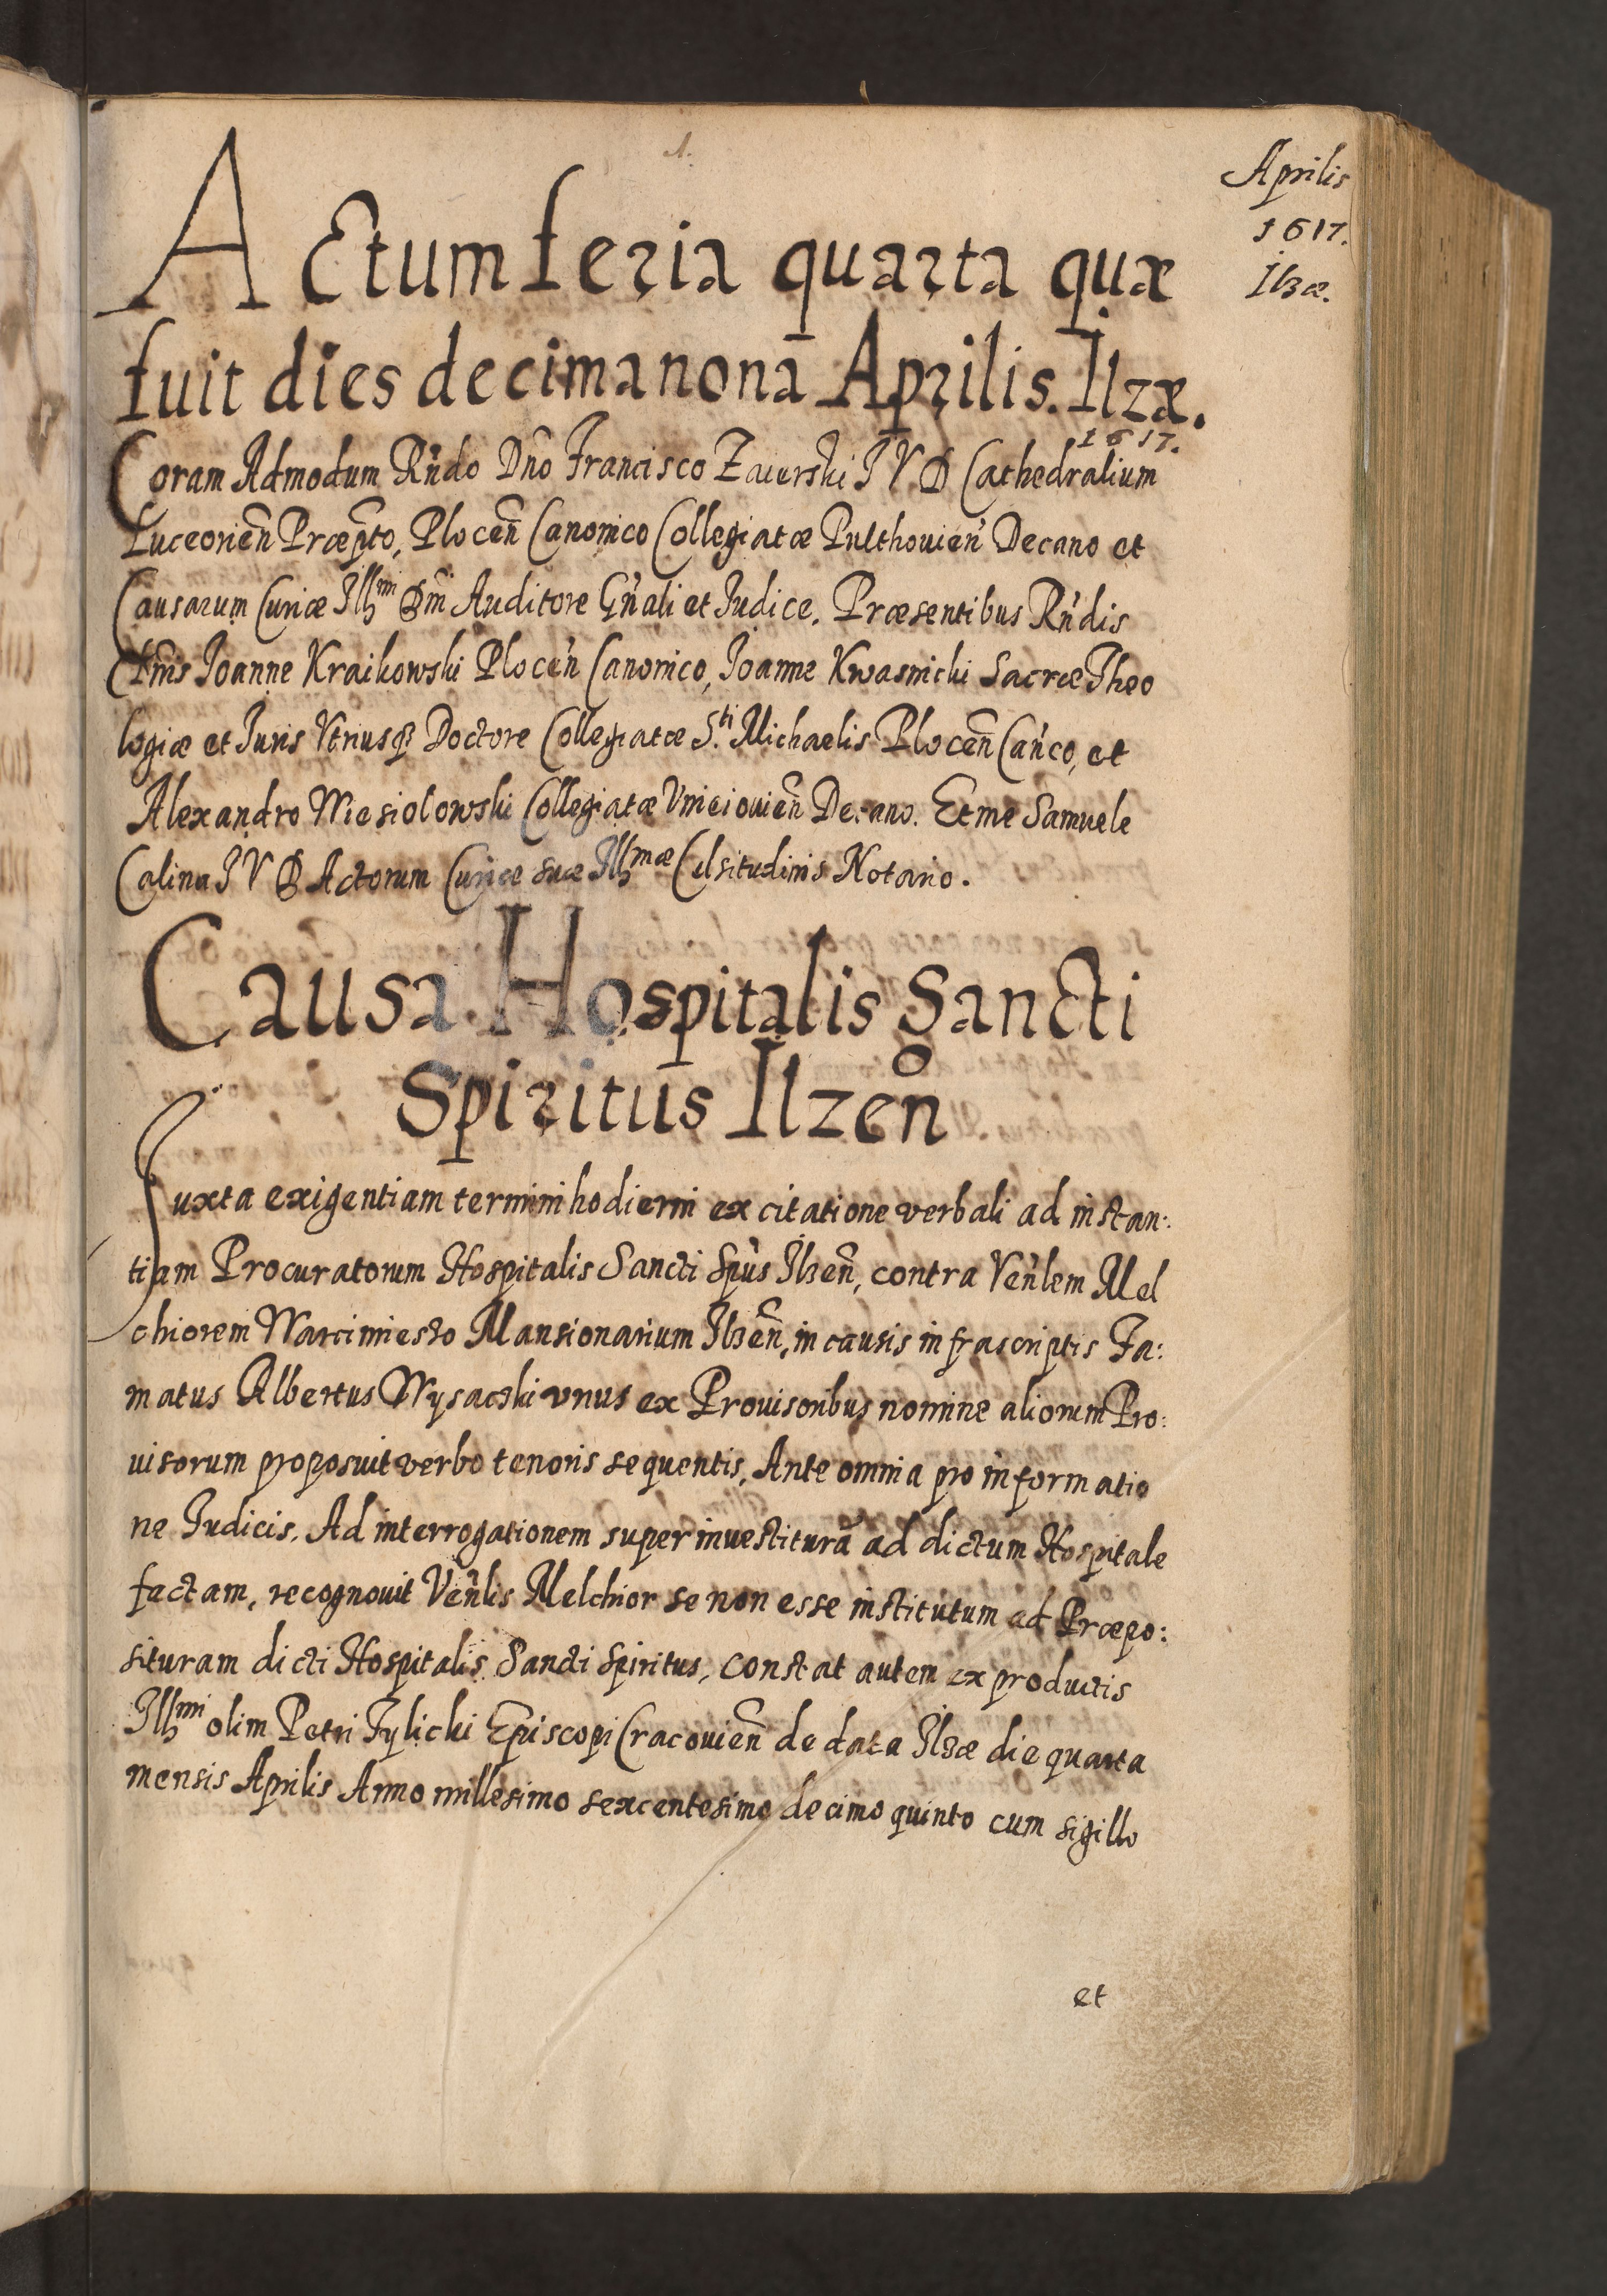 1.
Aprilis
1617.
Ilzæ.
ACtum feria quarta quæ
fuit dies decima nona Aprilis. Ilzæ.
1617.
Coram Admodum Rñdo Dño Francisco Zaierski I V D Cathedralium
Luceorien̄ Præpto, Plocen̄ Canonico Collegiatæ Pulthouien̄ Decano et
Causarum Curiæ Illmi Dm̄ Auditore Gñali et Iudice. Præsentibus Rñdis
Dñis Ioanne Kraikowski Plocen̄ Canonico, Ioanne Kwasnicki Sacræ Theo
logiæ et Iuris Vtriusq Doctore Collegiatæ S.ti Michaelis Plocen̄ Cañco, et
Alexandro Wiesiolowski Collegiatæ Vnieiouien̄ Decano. Et me Samuele
Calina I V D Actorum Curiæ suæ Illmæ Celsitudinis Notario.
Causa Hospitalis Sancti
Spiritus Ilzen̄
Iuxta exigentiam termini hodierni ex citatione verbali ad instan:
tiam Procuratorum Hospitalis Sancti Spũs Ilzen̄, contra Veñlem Mel
chiorem Warcimiesto Mansionarium Ilzen̄, in causis infrascriptis Fa:
matus Albertus Wysacski vnus ex Prouisoribus nomine aliorum Pro:
uisorum proposuit verbo tenoris sequentis, Ante omnia pro informatio
ne Iudicis. Ad interrogationem super inuestiturā ad dictum Hospitale
factam, recognouit Veñlis Melchior se non esse institutum ad Præpo:
situram dicti Hospitalis Sancti Spiritus, constat autem ex productis
Illmi olim Petri Tylicki Episcopi Cracouien̄ de data Ilzæ die quarta
mensis Aprilis Anno millesimo sexcentesimo decimo quinto cum sigillo
et